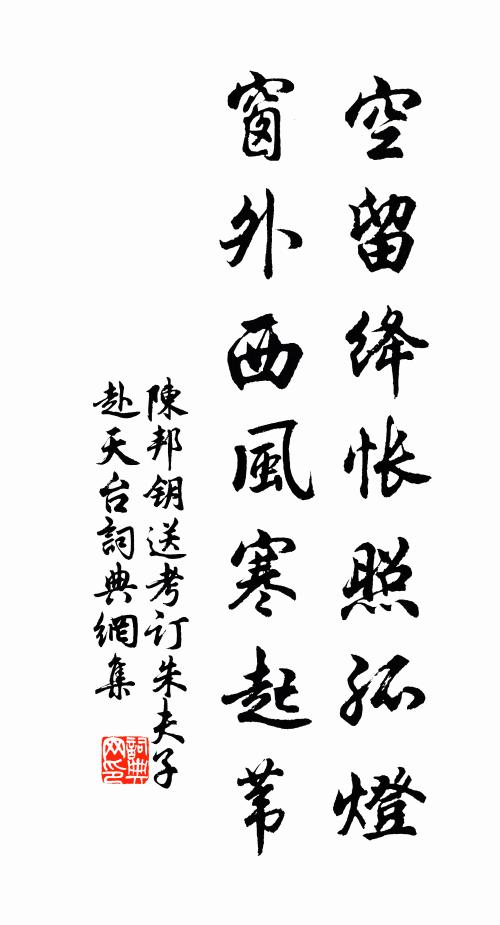 空留绛帐照孤燈
窗外西風寒起苇
陳邦钥送考订朱夫子
赴天台詞典網集
詞典网印